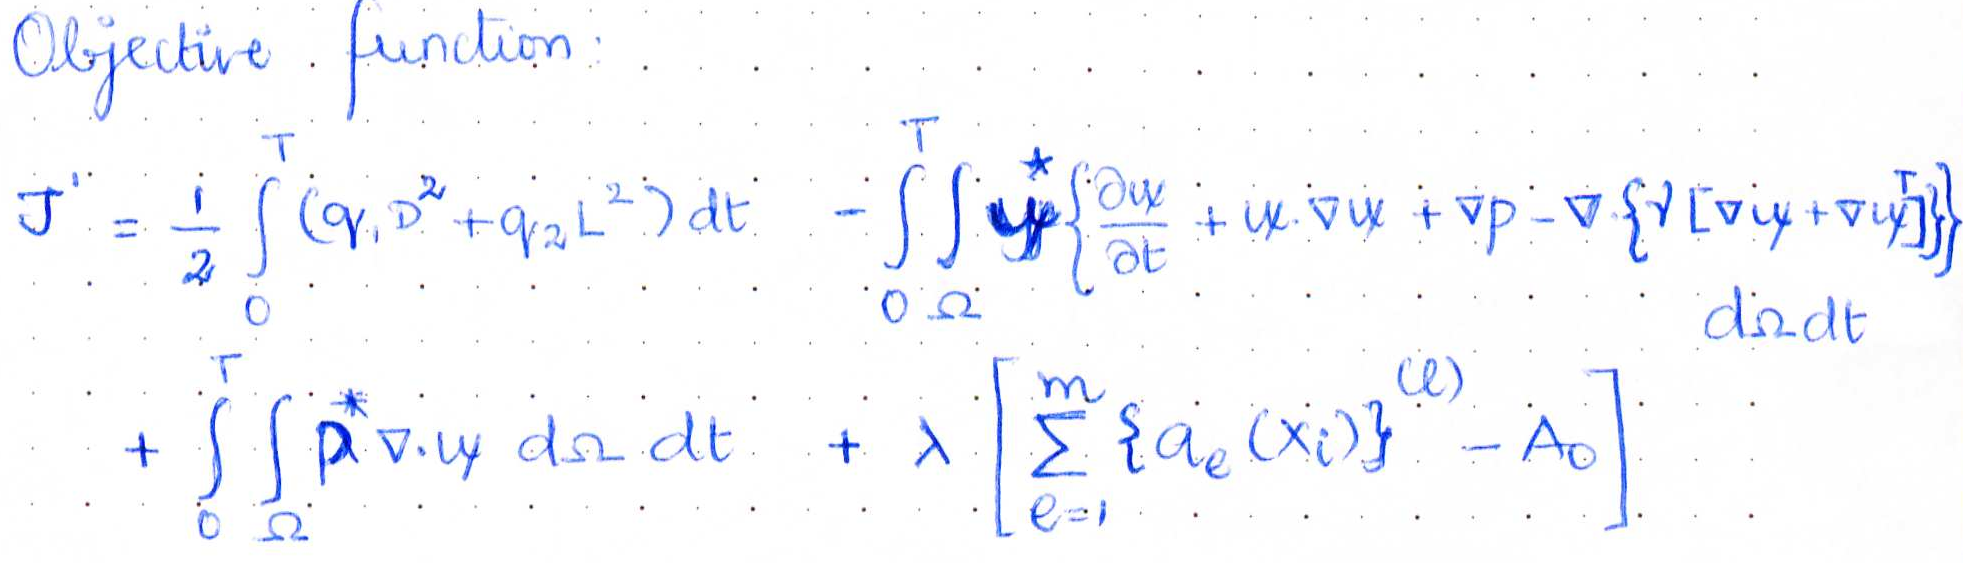 Objective function:
J' = \frac{1}{2} \int_0^T (q_1 D^2 + q_2 L^2) dt - \int_0^T \int_Ω u^* \{ \frac{∂u}{∂t} + u \cdot ∇u + ∇p - ∇ \cdot \{ν [∇u + ∇u^T]\} \}
dΩ dt
+ \int_0^T \int_Ω p^* ∇ \cdot u dΩ dt + λ [ \sum_{e=1}^m \{a_e (x_i)\}^{(e)} - A_0 ]